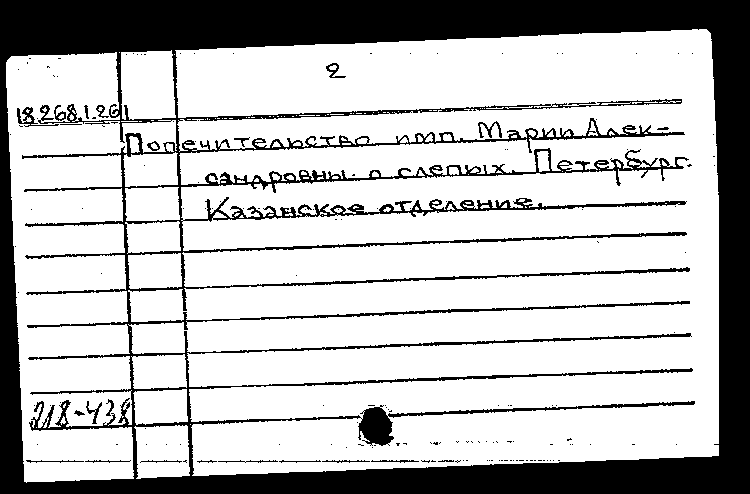 2
18.268.1.261
Попечительство имп. Марии Алек-
сандровны о слепых. Петербург.
Казанское отделение.
218-438